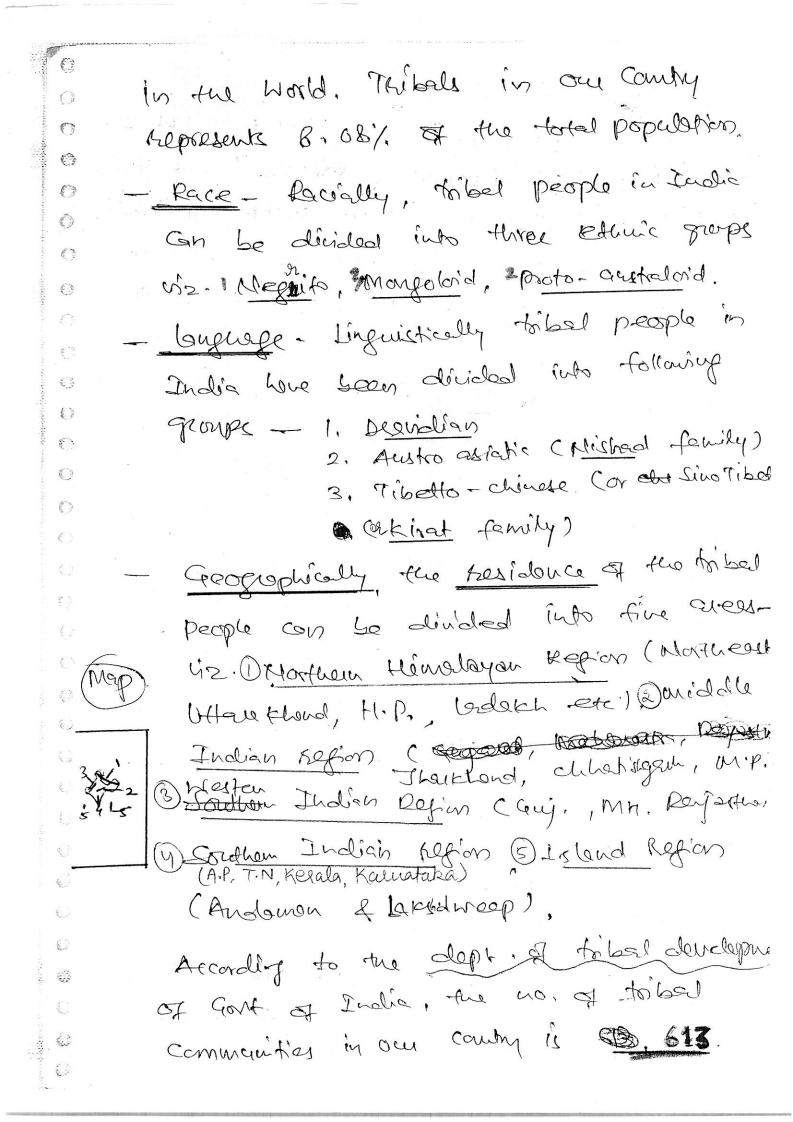 in the World. Tribals in our Country
represents 8.08% of the total population.
— Race - Racially, tribal people in India
Can be divided into three ethnic groups
viz. 1 Negrito, 3 Mongoloid, 2 proto-australoid.
— language - Linguistically tribal people in
India have been divided into following
groups — 1. Dravidian
2. Austro asiatic (Nishad family)
3. Tibetto-chinese (or Sino Tibet
(or Kirat family)
— Geographically, the residence of the tribal
people can be divided into five areas-
viz. ① Northern Himalayan Region (Northeast
Map
Uttarakhand, H.P., Ladakh etc.) ② middle
Indian Region (
Jharkhand, Chhattisgarh, M.P.
③ Western Indian Region (Guj., MH. Rajasthan
3 1 2 5 4 5
④ Southern Indian Region ⑤ Island Region
(A.P, T.N, Kerala, Karnataka)
(Andaman & Lakshdweep),
According to the dept. of tribal developme
of Govt of India, the no. of tribal
Communities in our country is 613.